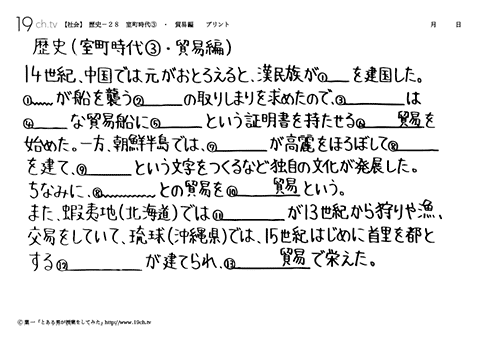 19ch.tv 【社会】 歴史－２８ 室町時代③ ・ 貿易編 プリント 月 日
歴史(室町時代③・貿易編)
14世紀、中国では元がおとろえると、漢民族が①___を建国した。
①﹏﹏が船を襲う②______の取りしまりを求めたので、③______は
④______な貿易船に⑤______という証明書を持たせる⑥___貿易を
始めた。一方、朝鮮半島では、⑦______が高麗をほろぼして⑧______
を建て、⑨______という文字をつくるなど独自の文化が発展した。
ちなみに、⑧﹏﹏﹏﹏との貿易を⑩___貿易という。
また、蝦夷地(北海道)では⑪______が13世紀から狩りや漁、
交易をしていて、琉球(沖縄県)では、15世紀はじめに首里を都と
する⑫______が建てられ、⑬___貿易で栄えた。
© 葉一「とある男が授業をしてみた」http://www.19ch.tv